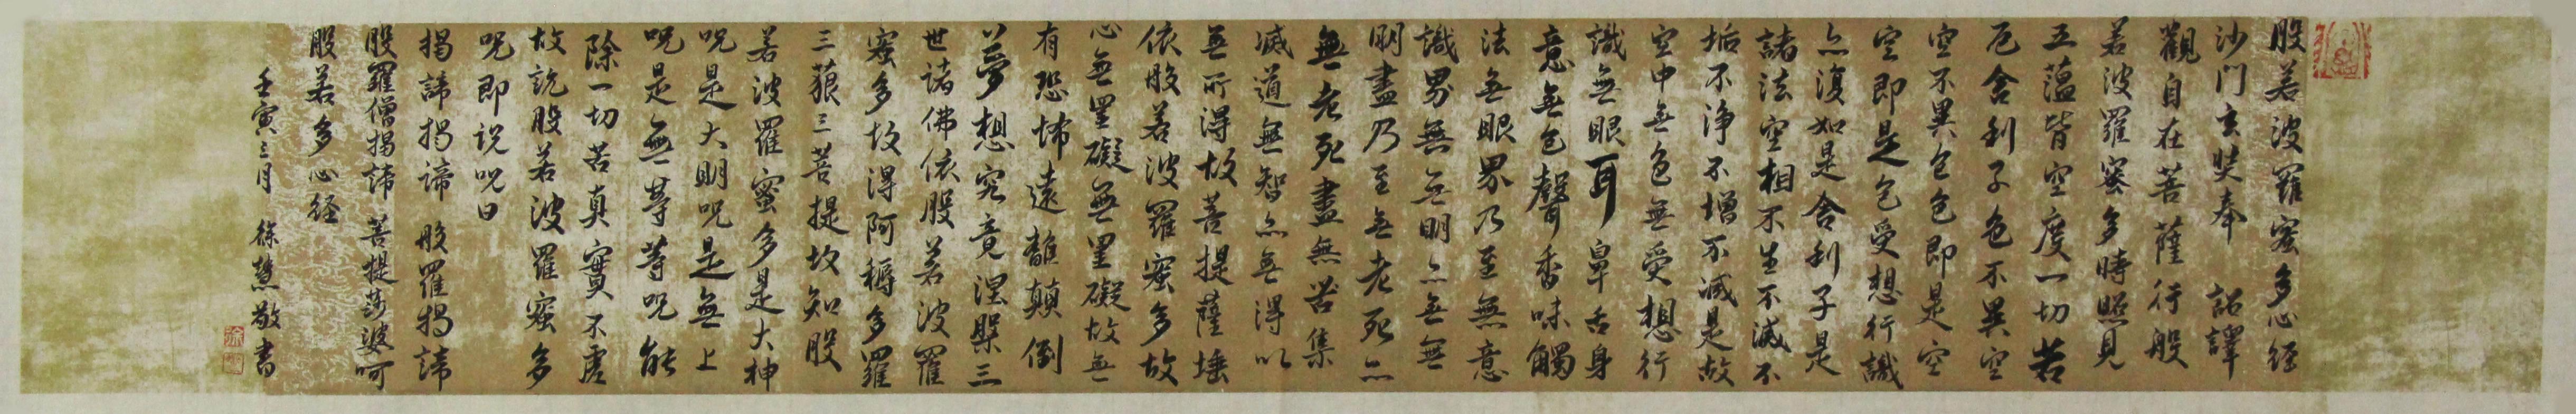 般若波羅蜜多心経
沙門玄奘奉 詔譯
觀自在菩薩行般
若波羅蜜多時照見
五蕴皆空度一切苦
厄舍利子色不異空
空不異色色即是空
空即是色受想行識
亦復如是舍利子是
諸法空相不生不滅不
垢不淨不增不减是故
空中無色無受想行
識無眼耳鼻舌身
意無色聲香味觸
法無眼界乃至無意
識界無無明亦無無
明盡乃至無老死亦
無老死盡無苦集
滅道無智亦無得以
無所得故菩提薩埵
依般若波羅蜜多故
心無罣礙無罣礙故無
有恐怖遠離顛倒
夢想究竟涅槃三
世諸佛依般若波羅
蜜多故得阿耨多羅
三藐三菩提故知般
若波羅蜜多是大神
呪是大明呪是無上
呪是無等等呪能
除一切苦真實不虛
故說般若波羅蜜多
呪即说呪曰
揭諦揭諦 般羅揭諦
般羅僧揭諦 菩提莎婆呵
般若多心経
壬寅三月 徐慧敬書